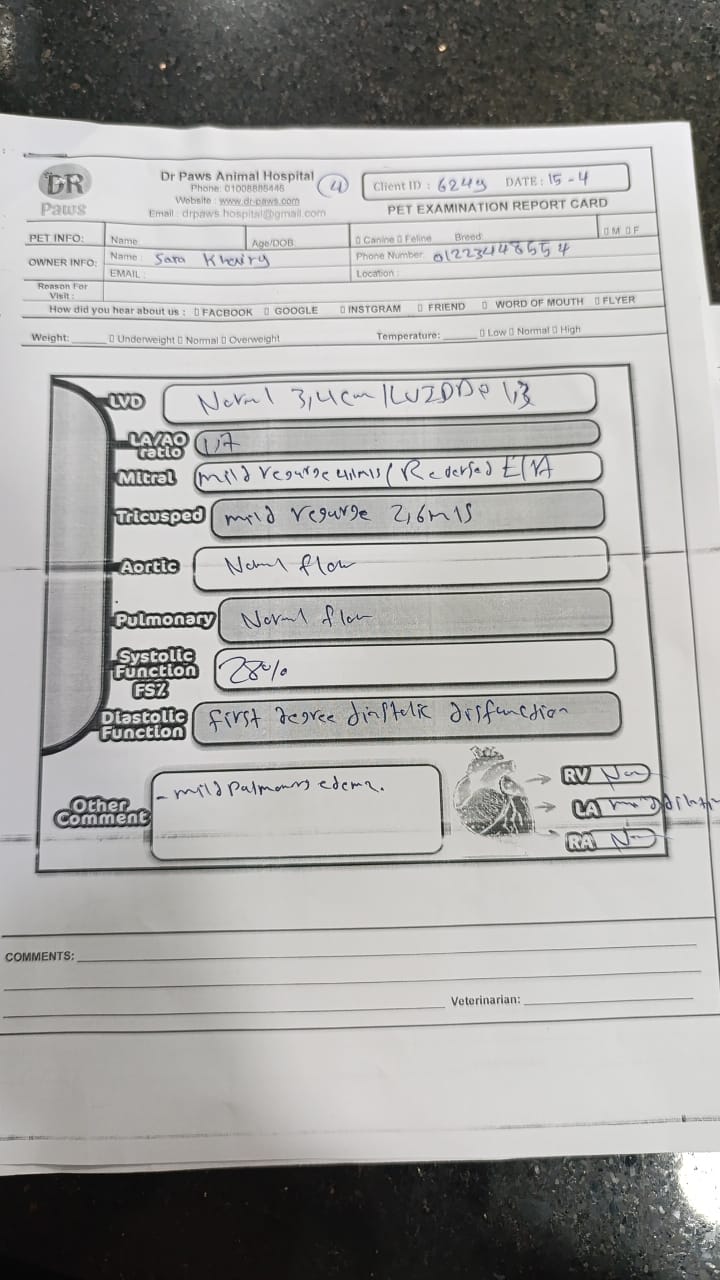 DR
Paws
Dr Paws Animal Hospital
Phone: 01008885446
Website : www.dr-paws.com
Email : drpaws.hospital@gmail.com
4
Client ID : 6249 DATE : 15-4
PET EXAMINATION REPORT CARD
PET INFO: Name Age/DOB Canine Feline Breed: M F
OWNER INFO: Name : Sara Khairy Phone Number: 01223448554
EMAIL : Location :
Reason For
Visit :
How did you hear about us : FACBOOK GOOGLE INSTGRAM FRIEND WORD OF MOUTH FLYER
Weight: Underweight Normal Overweight Temperature: Low Normal High
LVD Normal 3,4cm / LVIDD
LA/AO
ratio 1,7
Mitral mild regurge / Reversed E/A
Tricusped mild regurge 2,6m/s
Aortic Normal flow
Pulmonary Normal flow
Systolic
Function
FS% 28%
Diastolic
Function First degree diastolic disfunction
Other
Comment - mild Pulmonary edema.
RV Nor
LA
RA Nor
COMMENTS:
Veterinarian: